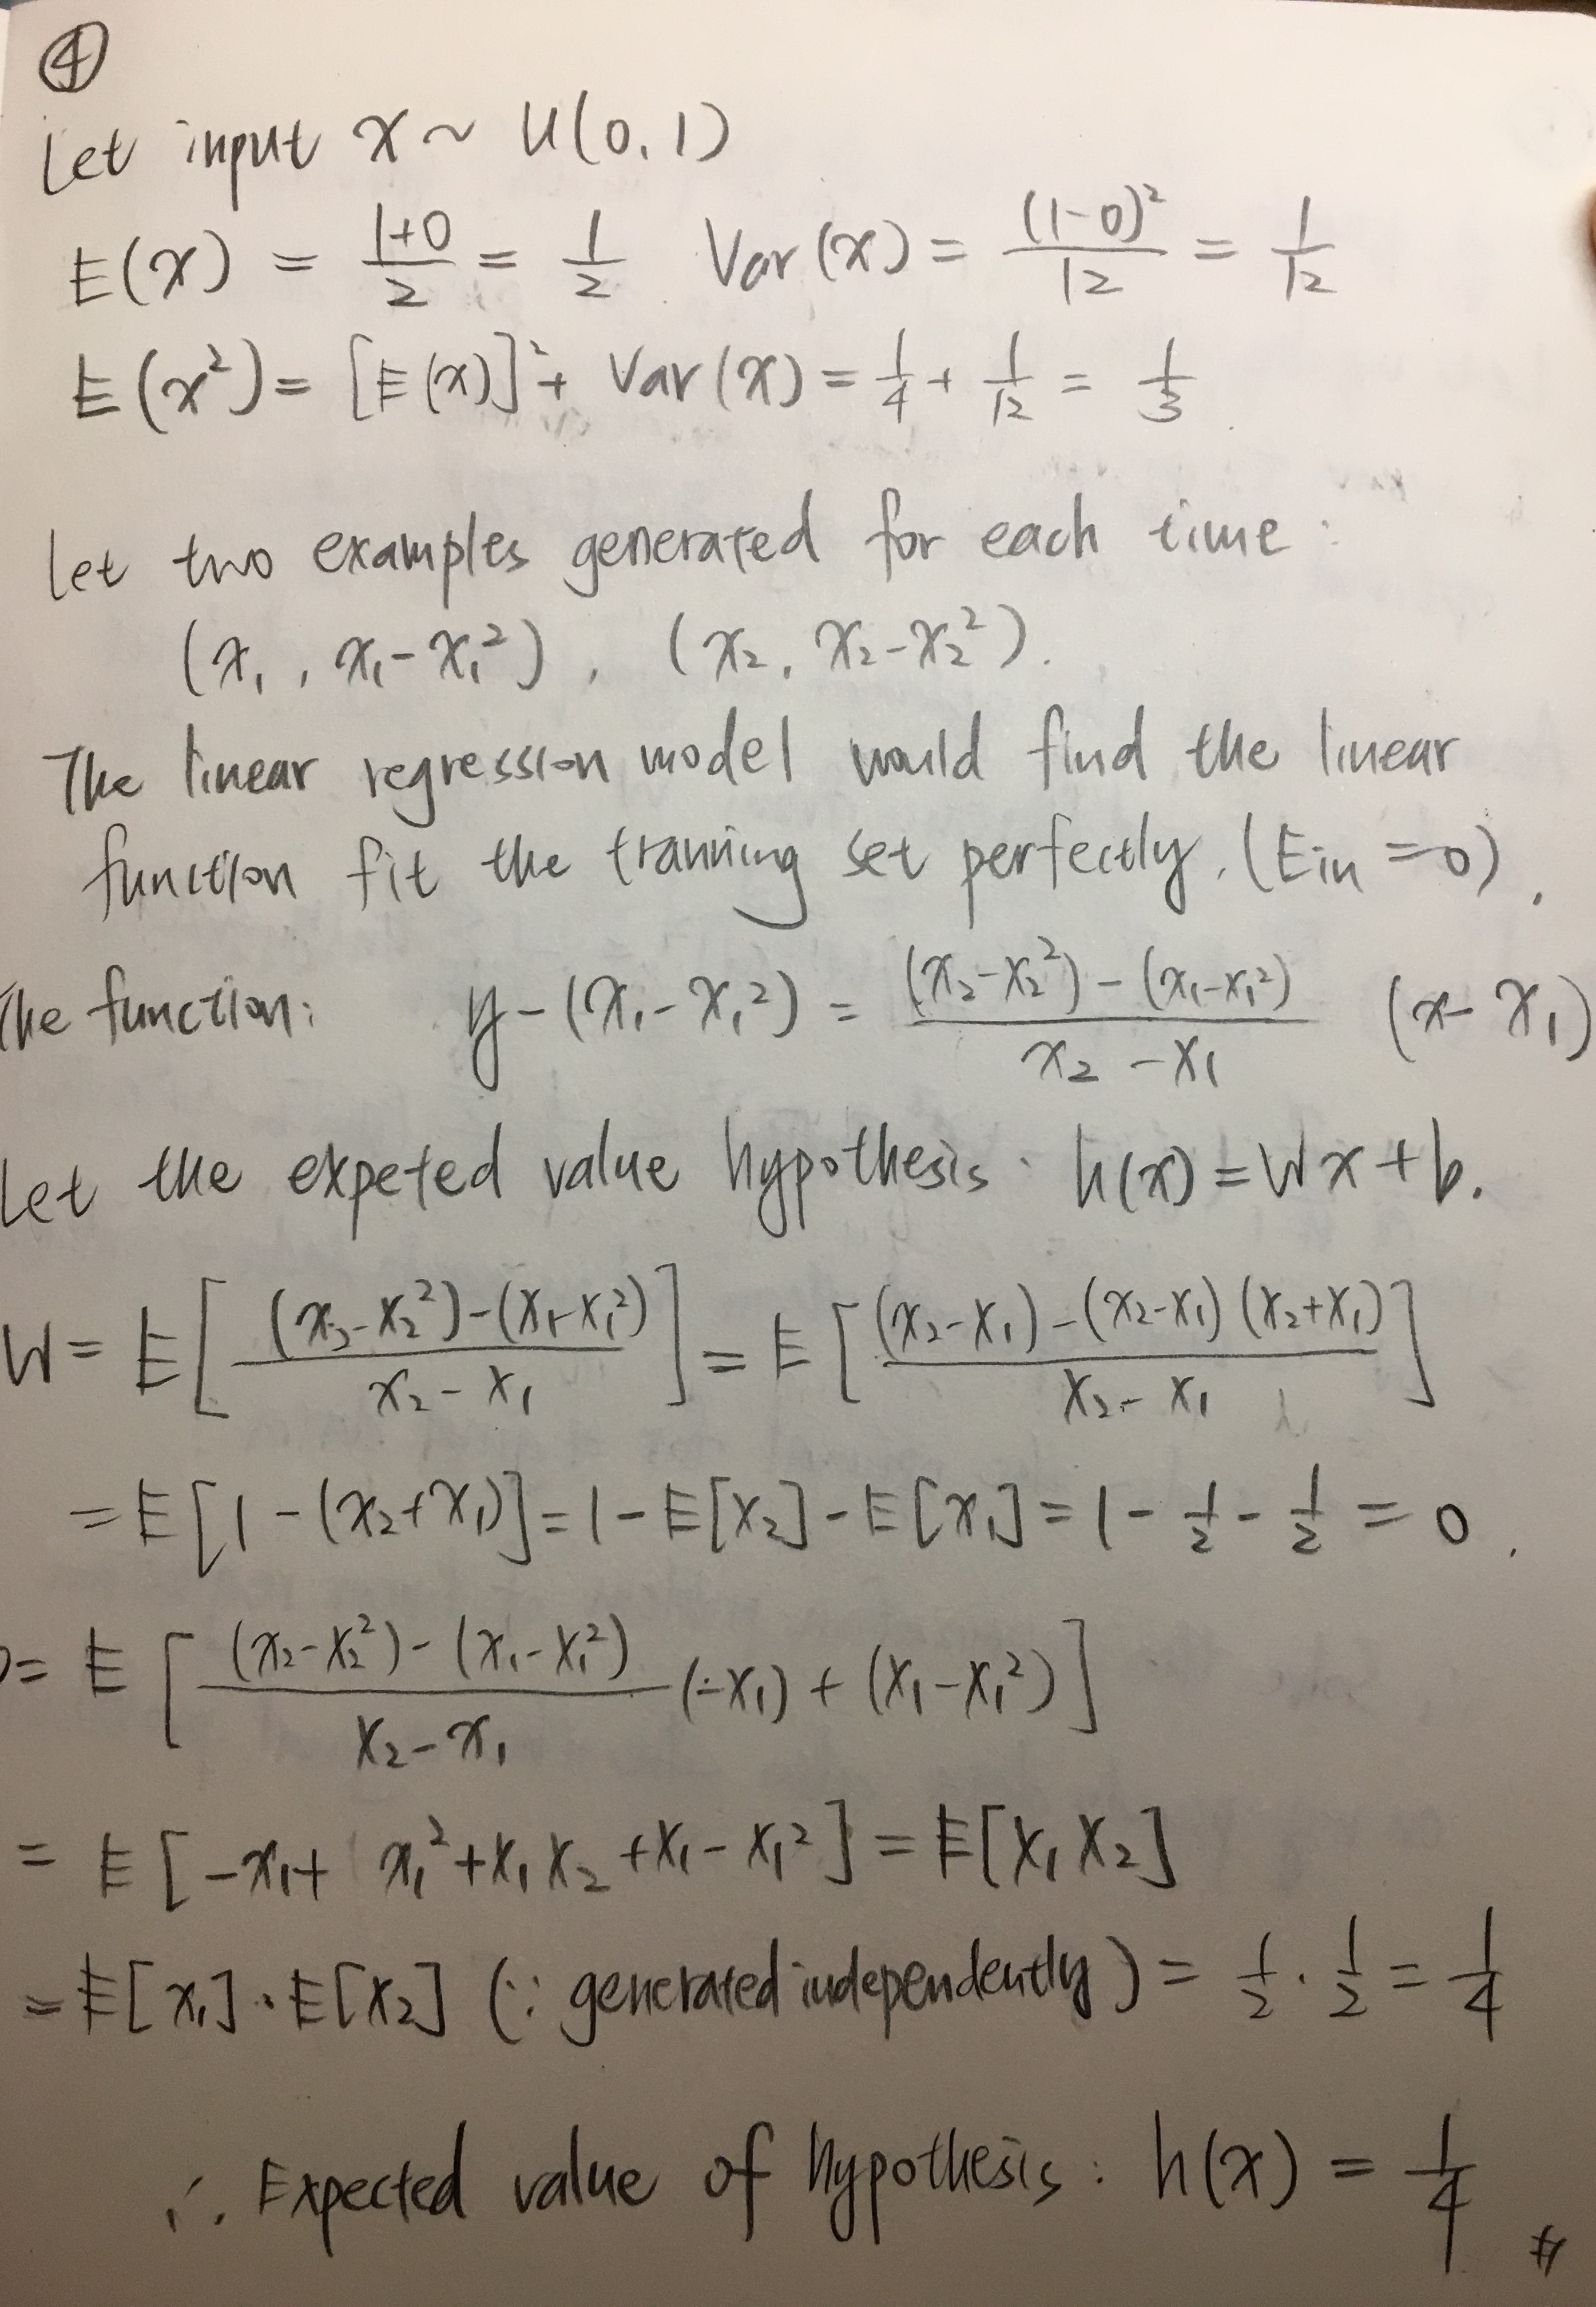 ④
Let input x ~ U(0,1)
E(x) = (1+0)/2 = 1/2 Var(x) = (1-0)²/12 = 1/12
E(x²) = [E(x)]² + Var(x) = 1/4 + 1/12 = 1/3
Let two examples generated for each time :
(x₁, x₁-x₁²), (x₂, x₂-x₂²).
The linear regression model would find the linear
function fit the tranning set perfectly. (Ein = 0).
The function: y-(x₁-x₁²) = ((x₂-x₂²)-(x₁-x₁²))/(x₂-x₁) (x-x₁)
Let the expeted value hypothesis : h(x) = Wx+b.
W = E[((x₂-x₂²)-(x₁-x₁²))/(x₂-x₁)] = E[((x₂-x₁)-(x₂-x₁)(x₂+x₁))/(x₂-x₁)]
= E[1-(x₂+x₁)] = 1-E[x₂]-E[x₁] = 1-1/2-1/2 = 0.
= E[((x₂-x₂²)-(x₁-x₁²))/(x₂-x₁) (-x₁) + (x₁-x₁²)]
= E[-x₁+x₁²+x₁x₂+x₁-x₁²] = E[x₁x₂]
= E[x₁]·E[x₂] (∵ generated independently) = 1/2 · 1/2 = 1/4
∴ Expected value of hypothesis : h(x) = 1/4 #